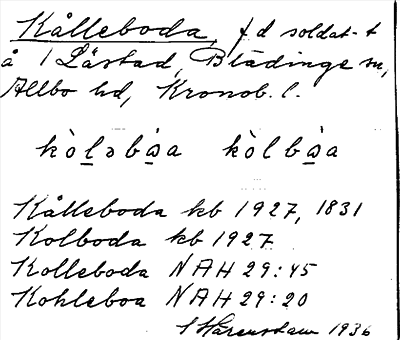 Kålleboda, f.d soldat-t
å 1 Lästad, Blädinge sn,
Allbo hd, Kronob. l.
kòl̲ǝbå̲̀a kòlbå̲̀a
Kålleboda kb 1927, 1831
Kolboda kb 1927
Kolleboda NAH 29:45
Kohleboa NAH 29:20
1936